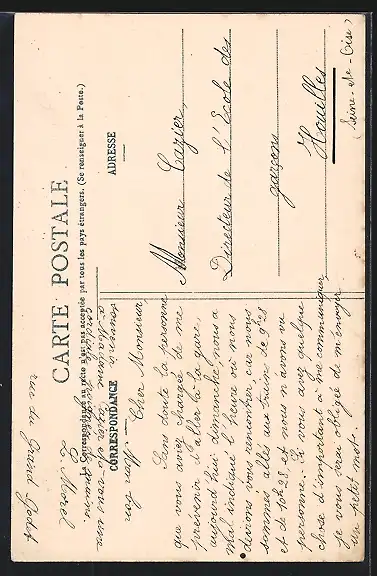 CARTE POSTALE
La Correspondance au recto n'est pas acceptée par tous les pays étrangers. (Se renseigner à la Poste.)
CORRESPONDANCE
ADRESSE
Cher Monsieur
Sans doute la personne
que vous aviez chargée de me
prévenir d'aller à la gare,
aujourd'hui dimanche, nous a
mal indiqué l'heure où nous
devions vous rencontrer, car nous
sommes allés aux trains de
et de 10h28 et nous n'avons vu
personne. Si vous avez quelque
chose d'important à me communiquer
je vous serai obligé de m'envoyer
un petit mot.
Mon bon
souvenir
à Madame Cazier et à vous une
cordiale poignée de mains.
L. Morel
rue du Grand Godet
Monsieur Cazier,
Directeur de l'Ecole des
garçons
Houilles
(Seine-et-Oise)